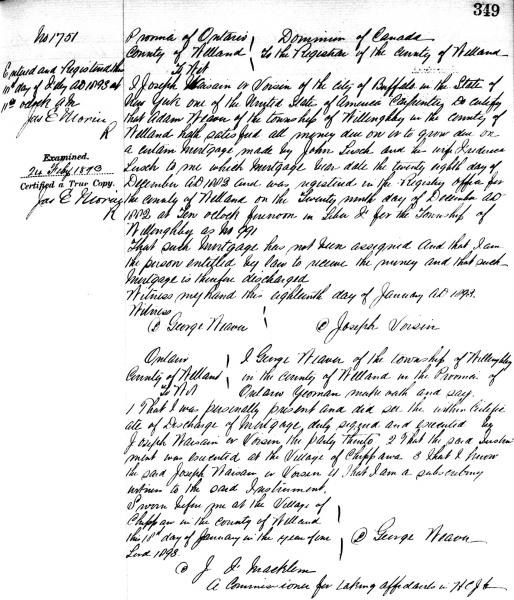 349
No 1751
Entered and Registered this
11th day of Feby AD 1893 at
11 oclock a m
Jas E Morin
R
Examined.
24 Feby 1893
Certified a True Copy.
Jas E Morin
R
Province of Ontario } Dominion of Canada
County of Welland } To the Registrar of the County of Welland
To Wit
I Joseph or Voisin of the city of Buffalo in the State of
New York one of the United States of America Carpenter Do certify
that Adam Weaver of the township of Willoughby in the county of
Welland hath satisfied all money due on or to grow due on
a certain mortgage made by John and his wife
to me which mortgage bears date the twenty eighth day of
December AD 1882 and was registered in the Registry office for
the county of Welland on the Twenty ninth day of December AD
1882 at Ten oclock forenoon in Liber for the Township of
Willoughby as No 991
That such mortgage has not been assigned and that I am
the person entitled by law to receive the money and that such
mortgage is therefore discharged
Witness my hand this eighteenth day of January AD 1893.
Witness
George Weaver } Joseph Voisin
Ontario } I George Weaver of the township of Willoughby
County of Welland } in the county of Welland in the Province of
To Wit } Ontario Yeoman make oath and say.
1 That I was personally present and did see the within Certific
ate of Discharge of Mortgage duly signed and executed by
Joseph or Voisin the party thereto 2 That the said Instru
ment was executed at the Village of Chippawa 3 That I know
the said Joseph or Voisin 4 That I am a subscribing
witness to the said Instrument.
Sworn before me at the Village of
Chippawa in the county of Welland
this 18th day of January in the year of our
Lord 1893.
George Weaver
J F Macklem
A Commissioner for taking affidavits in H C J &c